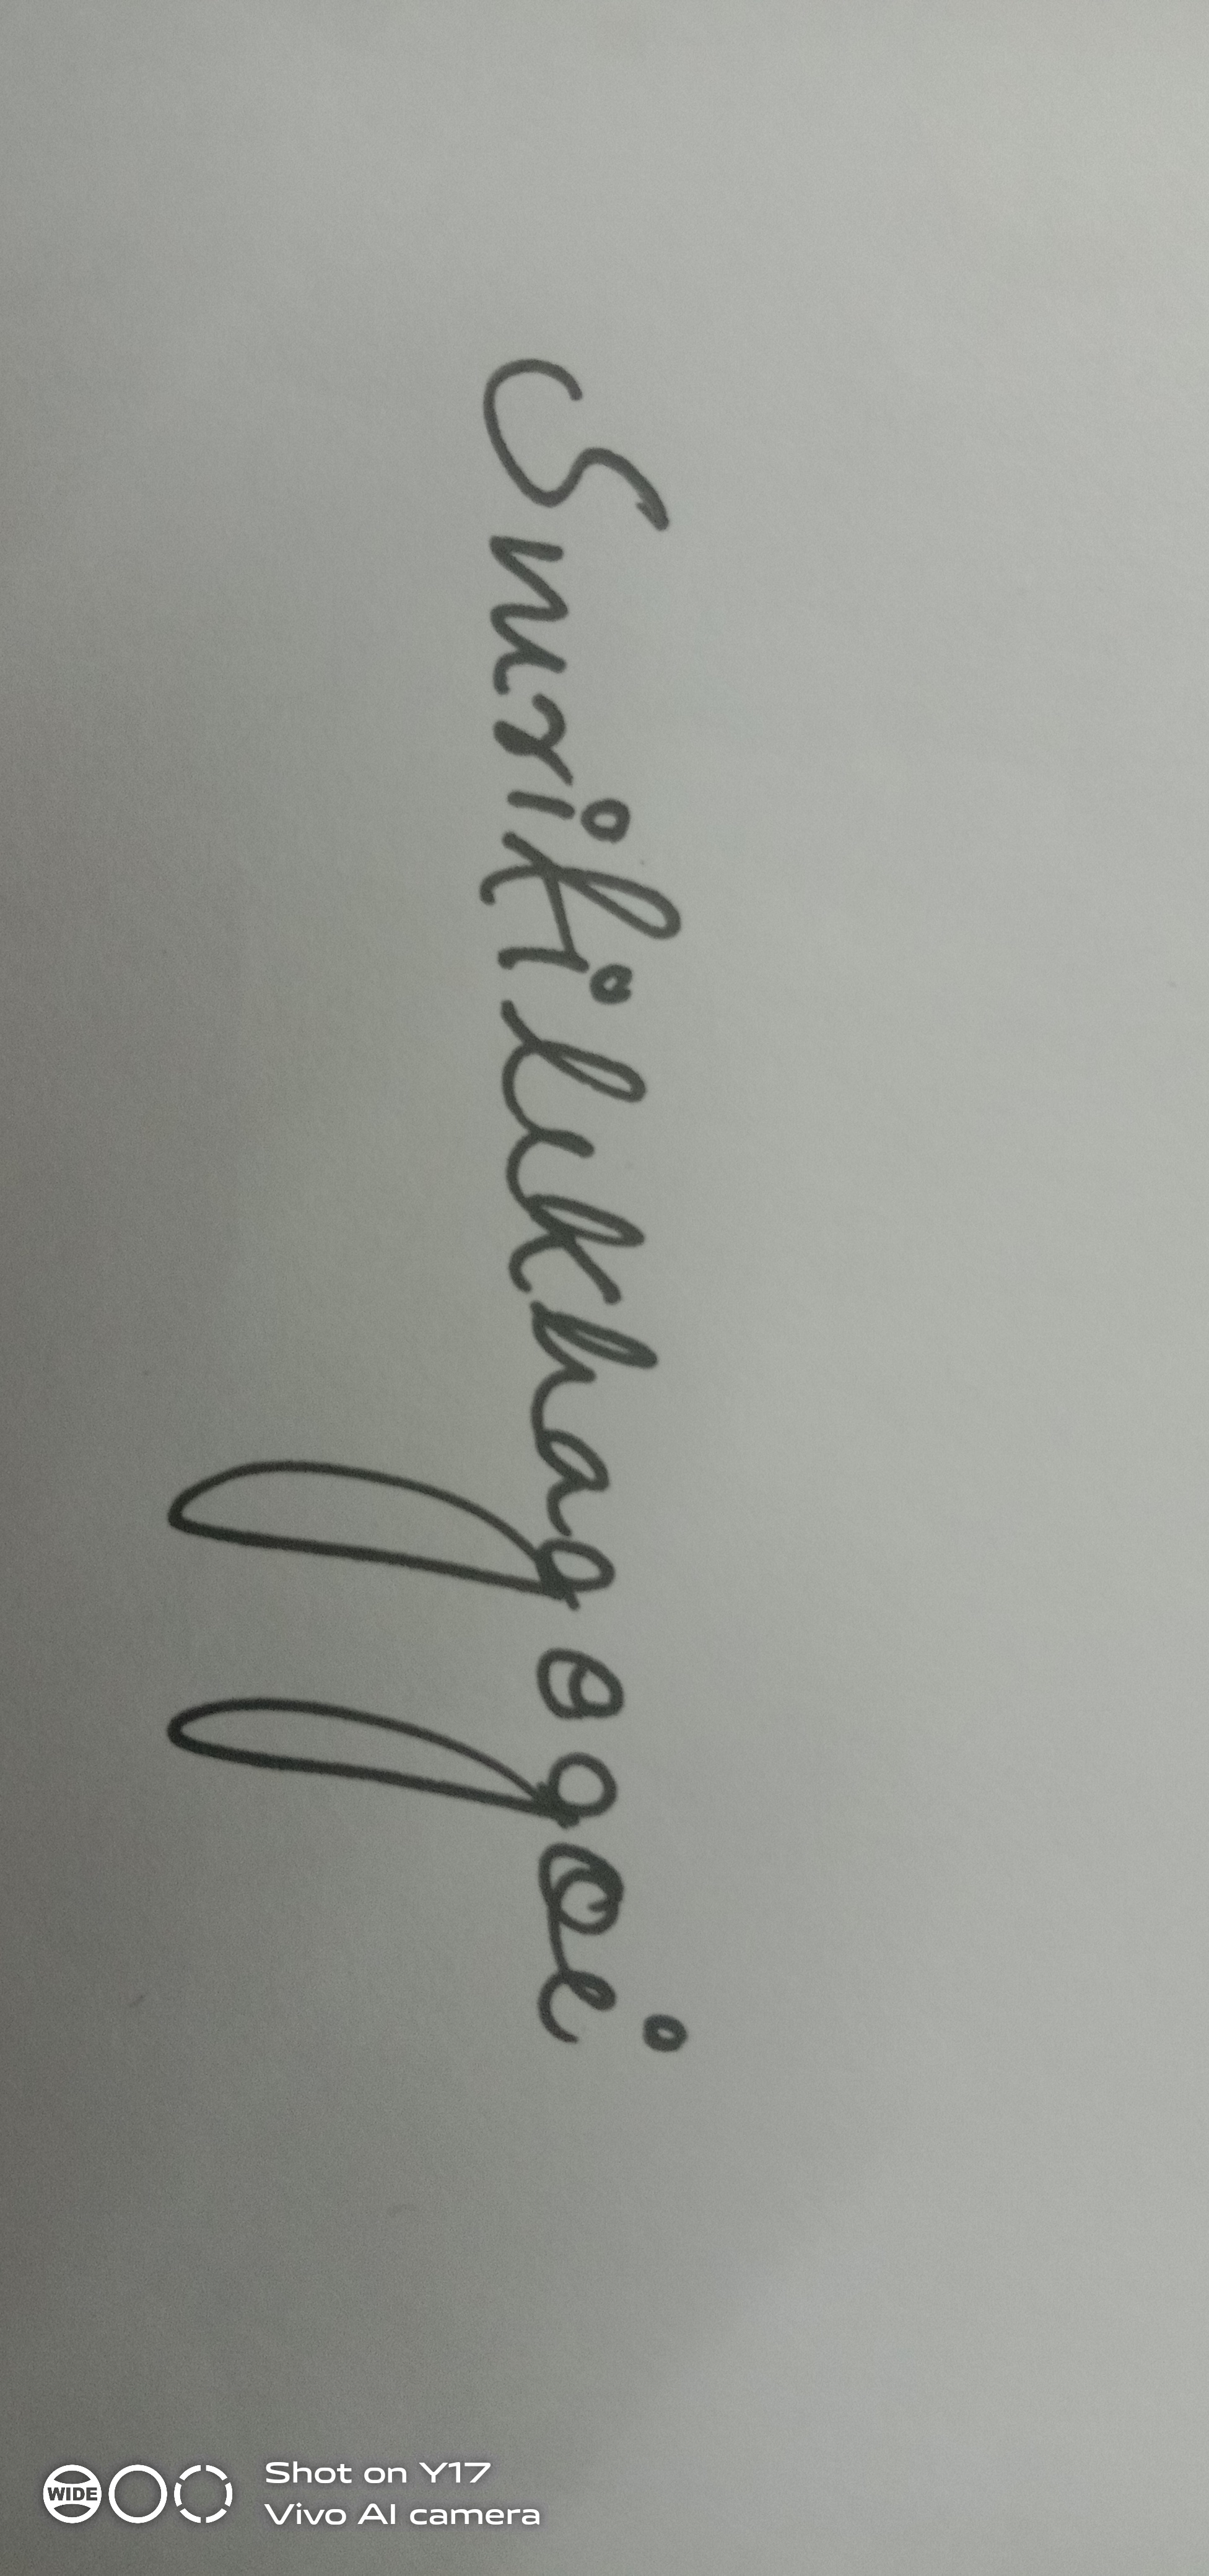 Smritilekha gogoi
WIDE
Shot on Y17
Vivo AI camera